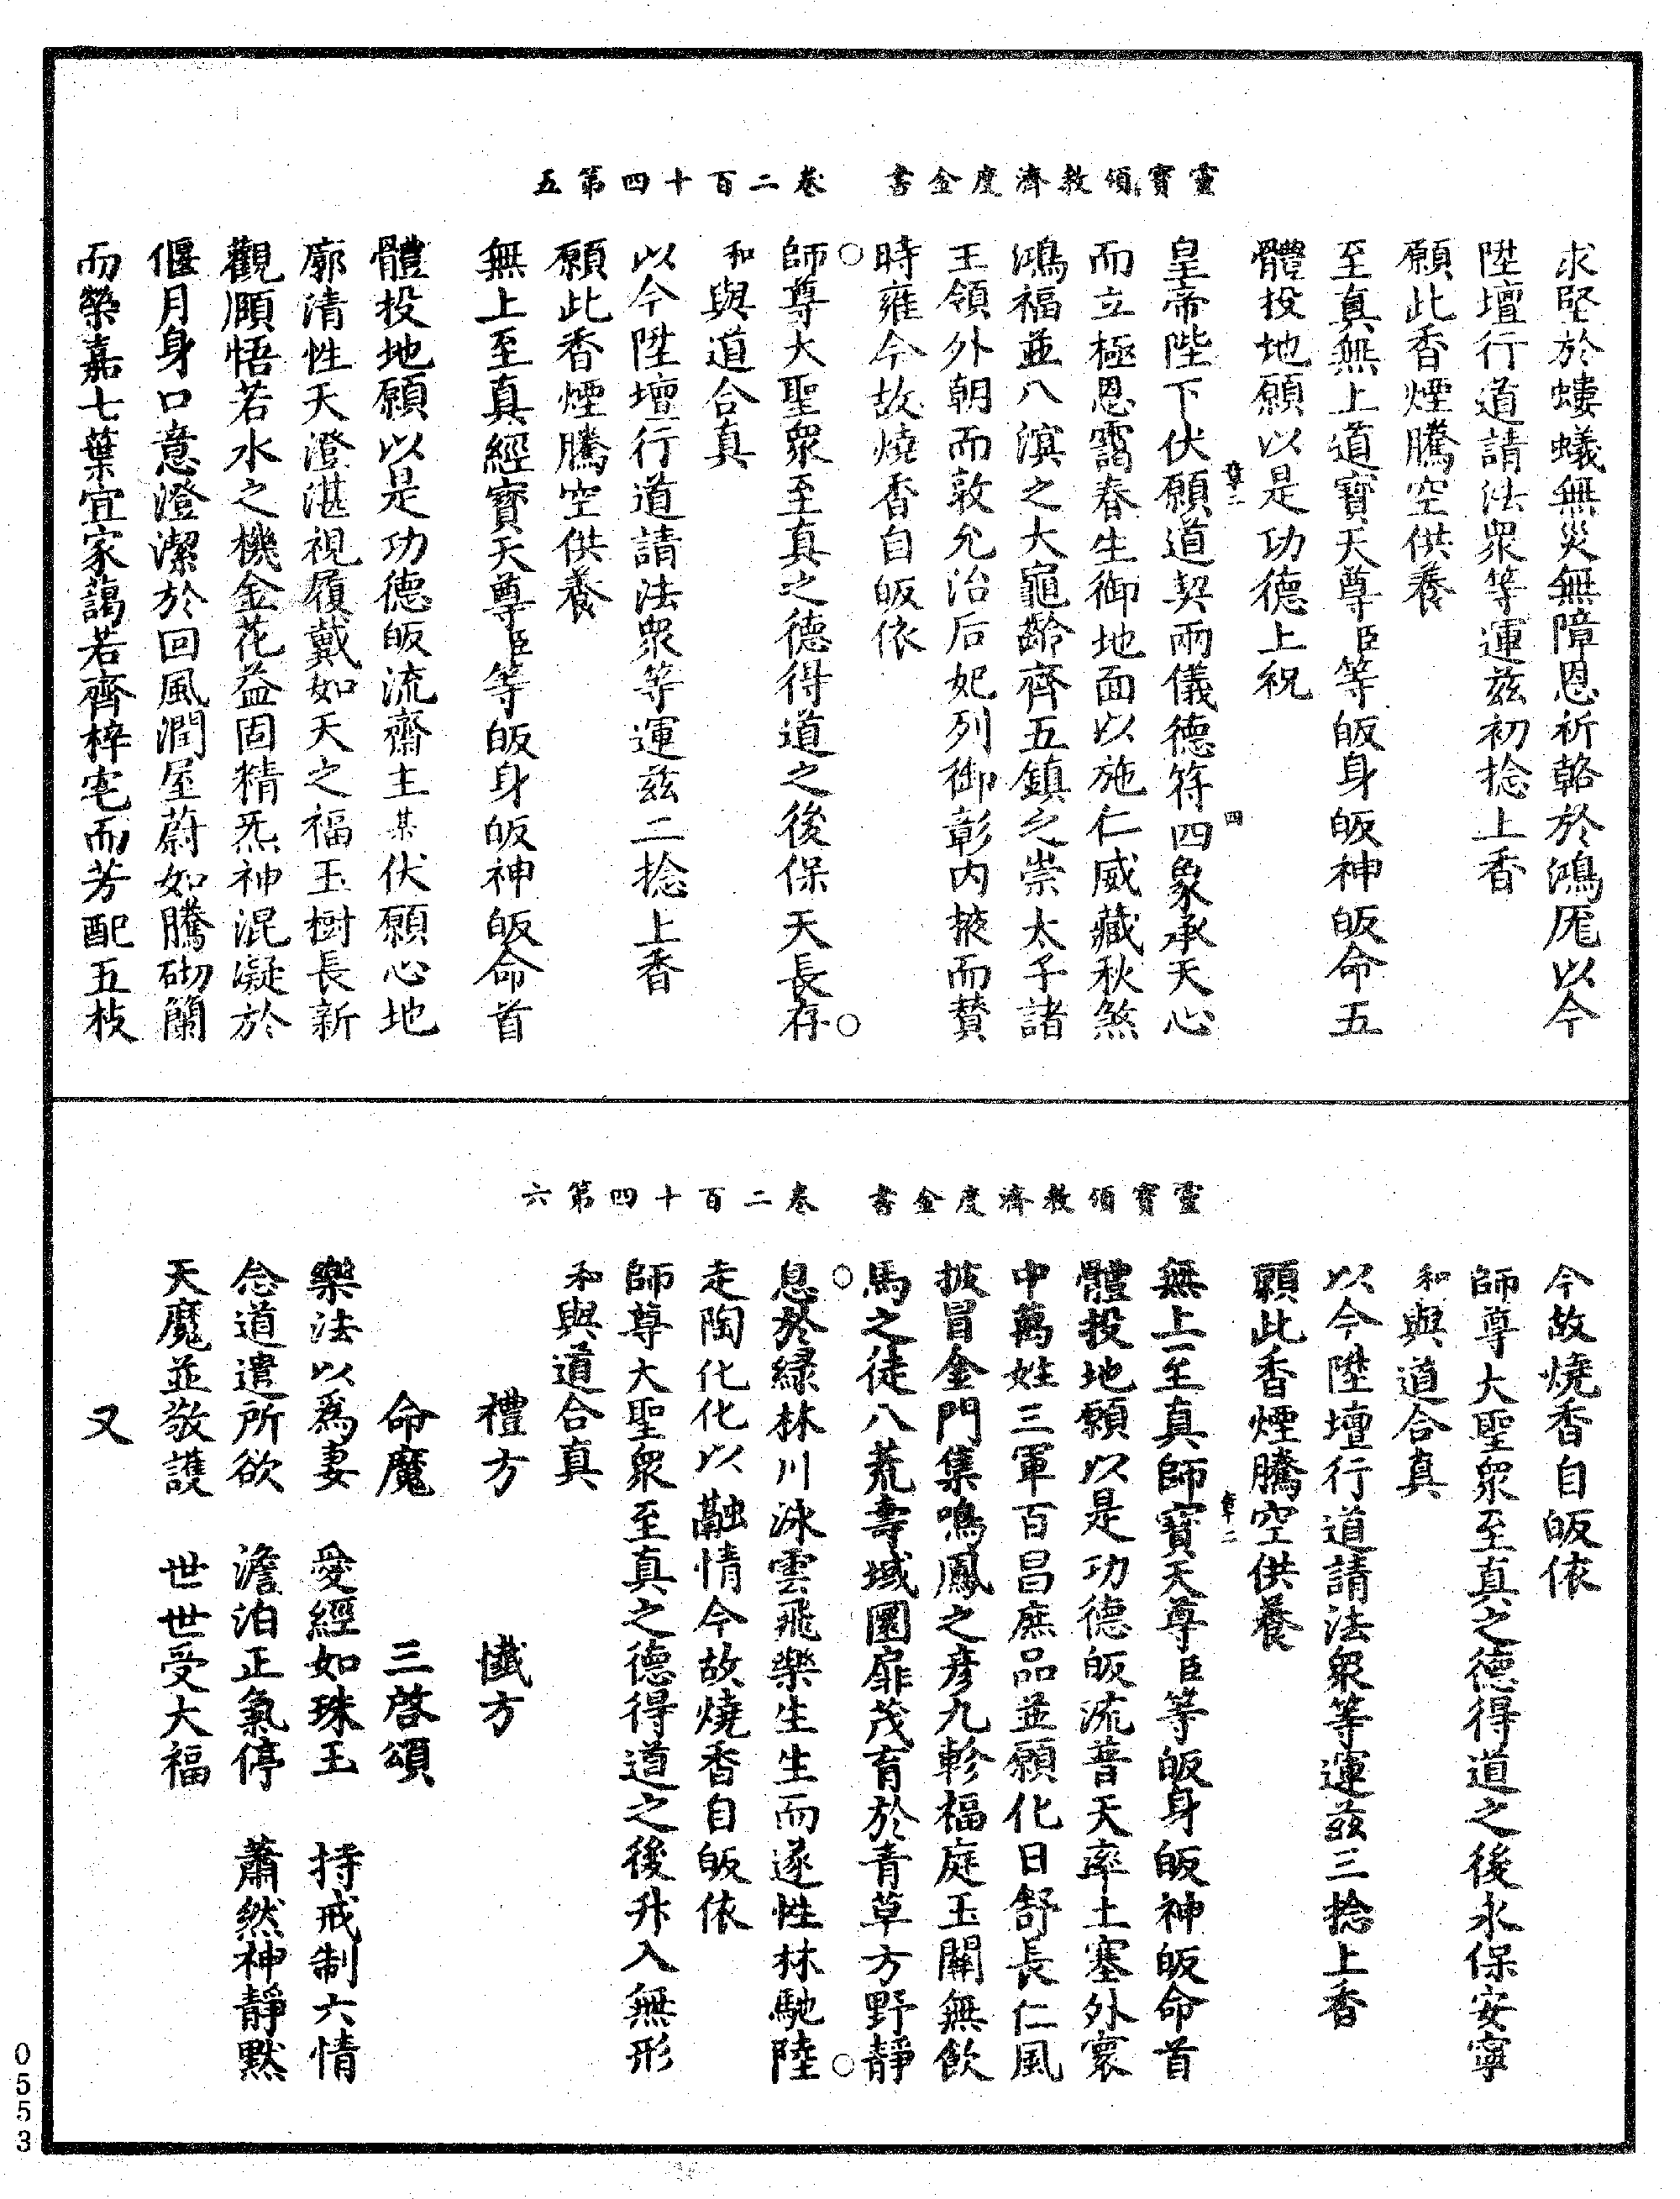 靈寶領教濟度金書　卷二百十四第五
求堅於螻蟻無災無障恩祈輅於鴻厖以今
陞壇行道請法衆等運茲初捻上香
願此香煙騰空供養
至真無上道寶天尊臣等皈身皈神皈命五
體投地願以是功德上祝
皇帝陛下伏願道契兩儀德符四象承天心
而立極恩霑春生御地面以施仁威藏秋煞
鴻福並八濱之大龜齡齊五鎮之崇太子諸
王領外朝而敦允治后妃列御彰內掖而贊
時雍今故燒香自皈依
師尊大聖衆至真之德得道之後保天長存
和與道合真
以今陞壇行道請法衆等運茲二捻上香
願此香煙騰空供養
無上至真經寶天尊臣等皈身皈神皈命首
體投地願以是功德皈流齋主某伏願心地
廓清性天澄湛視履戴如天之福玉樹長新
觀頤悟若水之機金花益固精炁神混凝於
偃月身口意澄潔於回風潤屋蔚如騰砌蘭
而榮嘉七葉宜家藹若齊梓宅而芳配五枝
靈寶領教濟度金書　卷二百十四第六
今故燒香自皈依
師尊大聖衆至真之德得道之後永保安寧
和與道合真
以今陞壇行道請法衆等運茲三捻上香
願此香煙騰空供養
無上至真師寶天尊臣等皈身皈神皈命首
體投地願以是功德皈流普天率土塞外寰
中萬姓三軍百昌庶品並願化日舒長仁風
披冒金門集鳴鳳之彥九軫福庭玉關無飲
馬之徒八荒壽域圜扉茂育於青草方野靜
息於綠林川泳雲飛樂生生而遂性林馳陸
走陶化化以融情今故燒香自皈依
師尊大聖衆至真之德得道之後升入無形
和與道合真
禮方　懺方
命魔　三啓頌
樂法以爲妻　愛經如珠玉　持戒制六情
念道遣所欲　澹泊正氣停　蕭然神靜默
天魔並敬護　世世受大福
又
0553